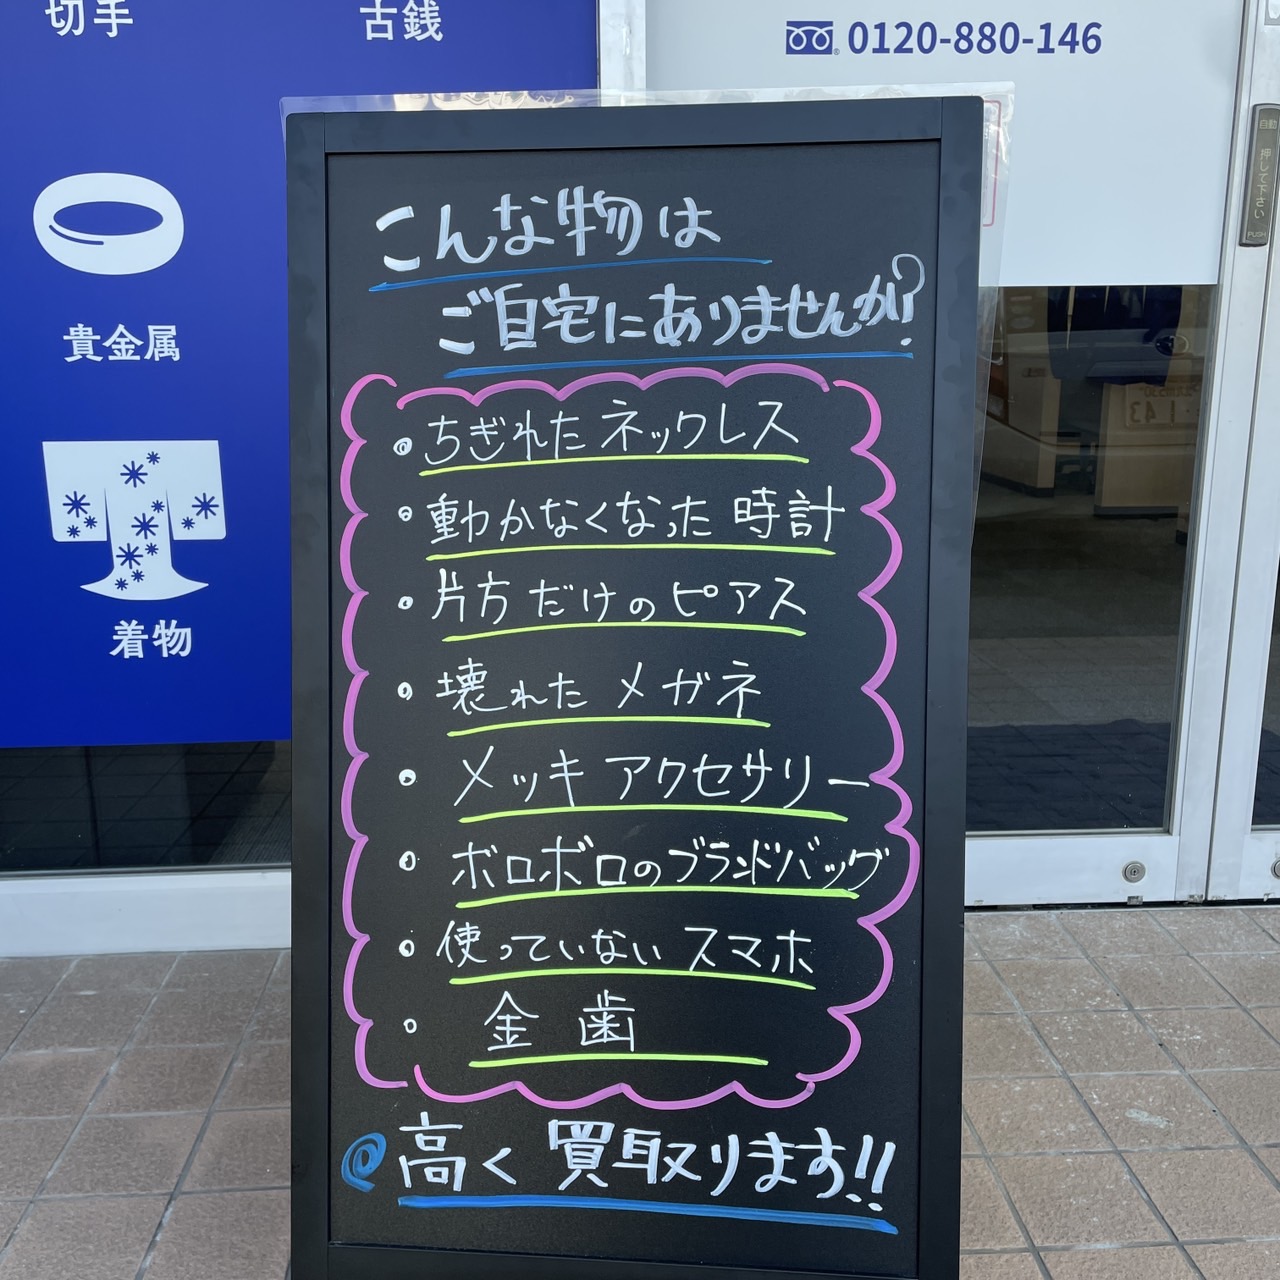 切手
古銭
0120-880-146
貴金属
着物
自動
押して下さい
PUSH
こんな物は
ご自宅にありませんか?
・ちぎれたネックレス
・動かなくなった時計
・片方だけのピアス
・壊れたメガネ
・メッキアクセサリー
・ボロボロのブランドバッグ
・使っていないスマホ
・金歯
@高く買取ります!!